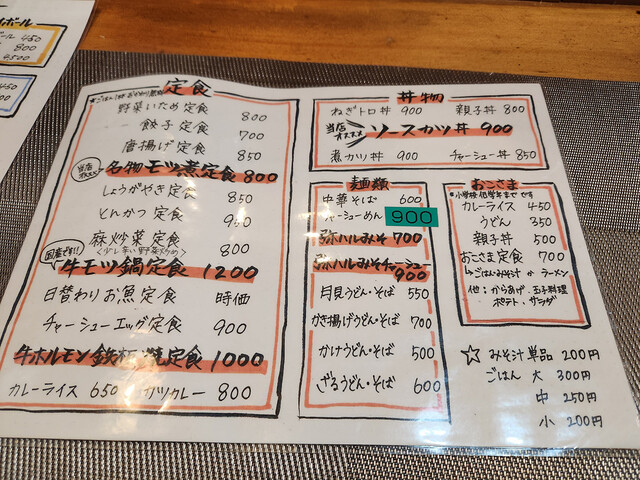 ボール
450
800
2550
450
定食
野菜いため定食 800
餃子定食 700
唐揚げ定食 850
当店オススメ
名物モツ煮定食 800
しょうがやき定食 850
とんかつ定食
麻炒菜定食 800
(少し辛い野菜炒め)
国産です!!
牛モツ鍋定食 1200
日替わりお魚定食 時価
チャーシューエッグ定食 900
牛ホルモン鉄板焼定食 1000
カレーライス 650 カツカレー 800
丼物
ねぎトロ丼 900 親子丼 800
当店オススメ ソースカツ丼 900
煮カツ丼 900 チャーシュー丼 850
麺類
中華そば 600
チャーシューめん 900
弥ハルみそ 700
弥ハルみそチャーシュー
900
月見うどん・そば 550
かき揚げうどん・そば 700
かけうどん・そば 500
ざるうどん・そば 600
おこさま
*小学校低学年までです
カレーライス 450
うどん 350
親子丼 500
おこさま定食 700
↳ごはんみそ汁 か ラーメン
他:からあげ・玉子料理
ポテト・サラダ
☆ みそ汁単品 200円
ごはん 大 300円
中 250円
小 200円